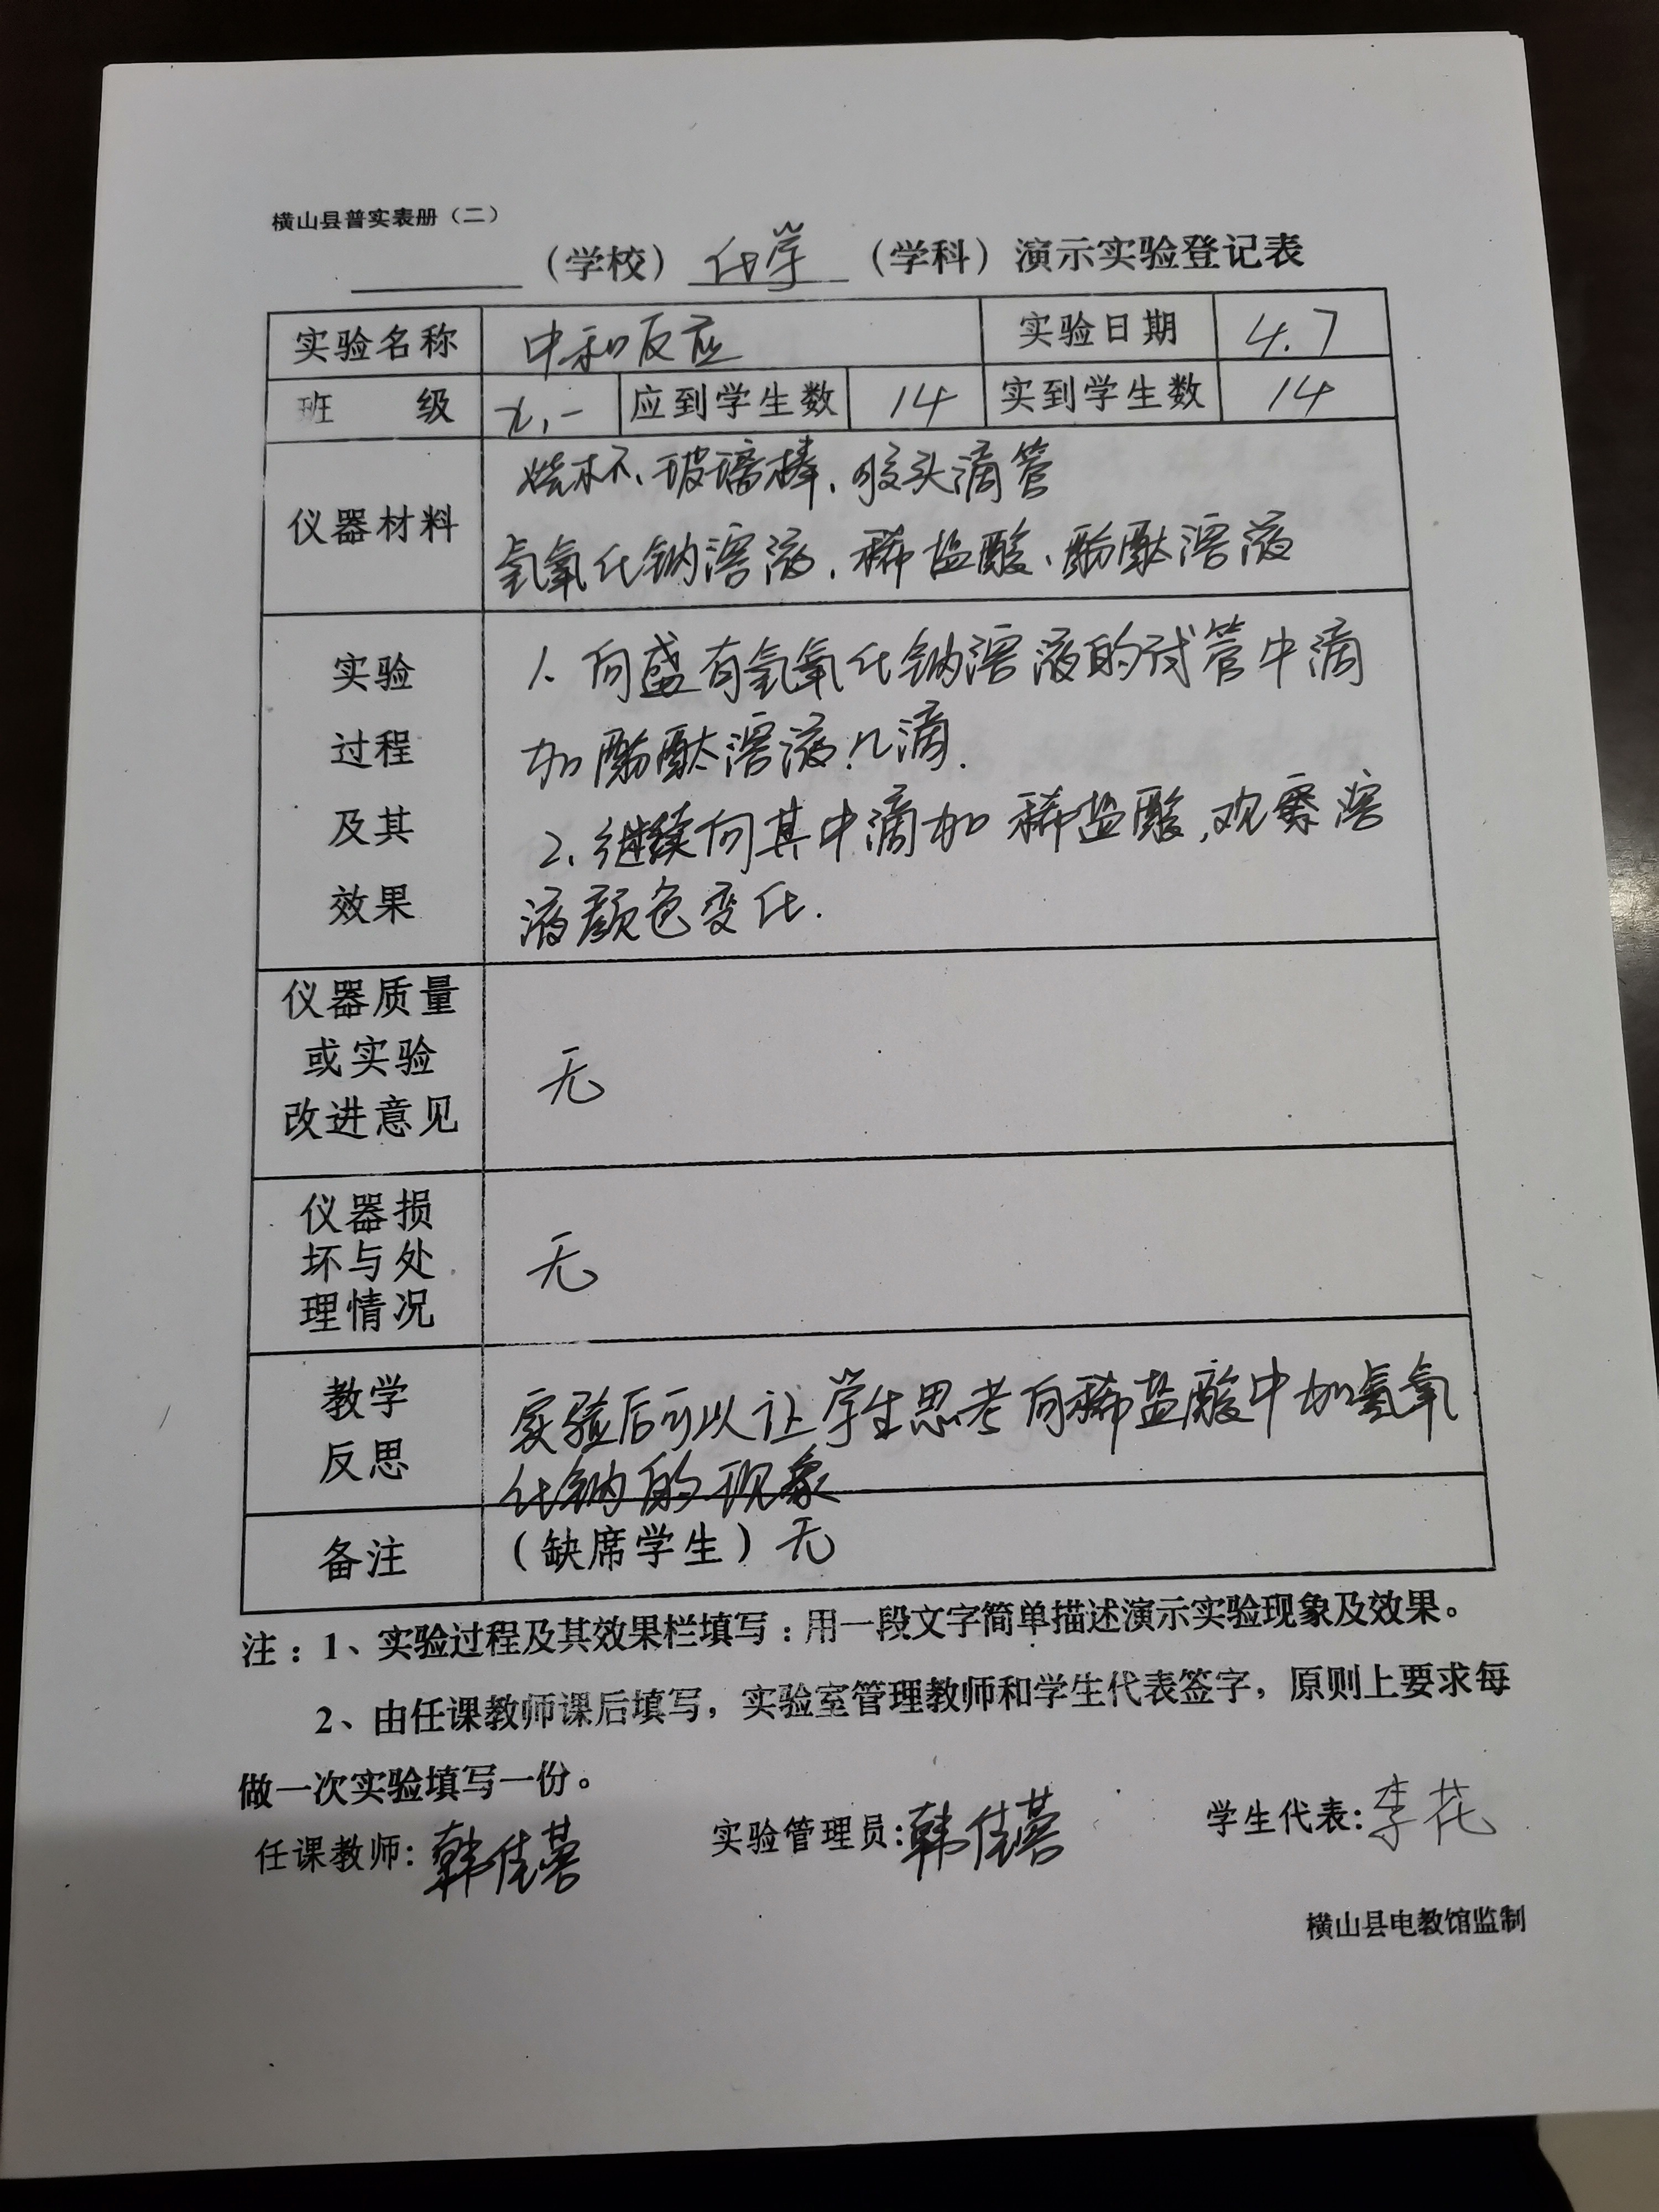 横山县普实表册（二）
（学校）化学（学科）演示实验登记表
实验名称 中和反应 实验日期 4.7
班 级 九.一 应到学生数 14 实到学生数 14
烧杯、玻璃棒、胶头滴管
仪器材料
氢氧化钠溶液、稀盐酸、酚酞溶液
实验
过程
及其
效果
1、向盛有氢氧化钠溶液的试管中滴
加酚酞溶液几滴.
2、继续向其中滴加稀盐酸,观察溶
液颜色变化.
仪器质量
或实验
改进意见
无
仪器损
坏与处
理情况
无
教学
反思
实验后可以让学生思考向稀盐酸中加氢氧
化钠的现象
备注 （缺席学生）无
注：1、实验过程及其效果栏填写：用一段文字简单描述演示实验现象及效果。
2、由任课教师课后填写，实验室管理教师和学生代表签字，原则上要求每
做一次实验填写一份。
任课教师：韩佳蓉 实验管理员：韩佳蓉 学生代表：李花
横山县电教馆监制